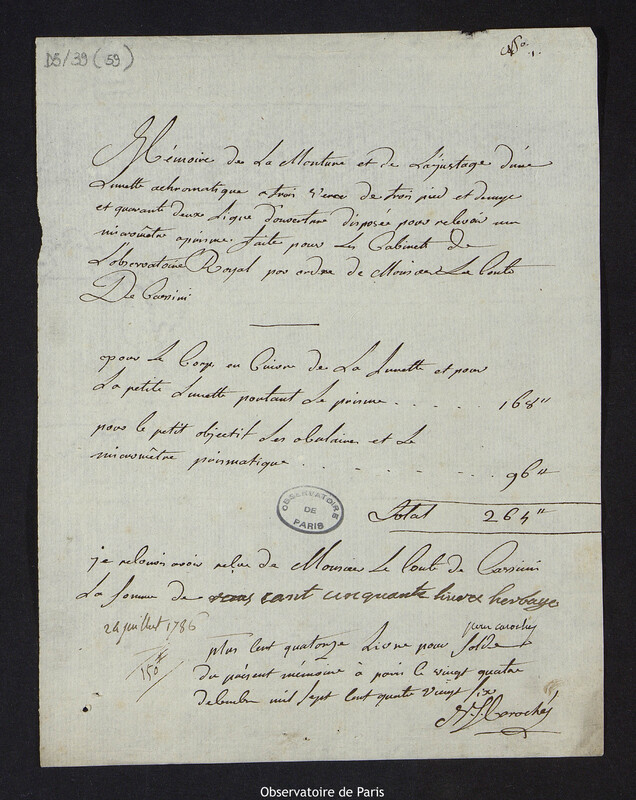 D5/39 (59)
Mémoire de La Monture et de L'ajustage d'une
Lunette achromatique a trois verre de trois pied et demye
et quarante deux Ligne d'ouverture disposée pour recevoir un
micromètre aprisme faite pour Les Cabinets de
L'observatoire Royal par ordre de Monsieur Le Conte
De Cassini
pour Le Corps en Cuivre de La Lunette et pour
La petite Lunette portant Le prisme . . . . . 168"
pour le petit objectif Les et Le
micromètre prismatique . . . . . . . 96"
OBSERVATOIRE
DE
PARIS
Total 264"
je reconois avoir resue de Monsieur Le Conte de Cassini
La somme de cent cinquante livres
24 juillet 1786
pour carochez
150
plus Cent quatorze Livre pour Solde
du présent mémoire à paris le vingt quatre
decembre mil sept Cent quatre vingt six
Carochéz
Observatoire de Paris